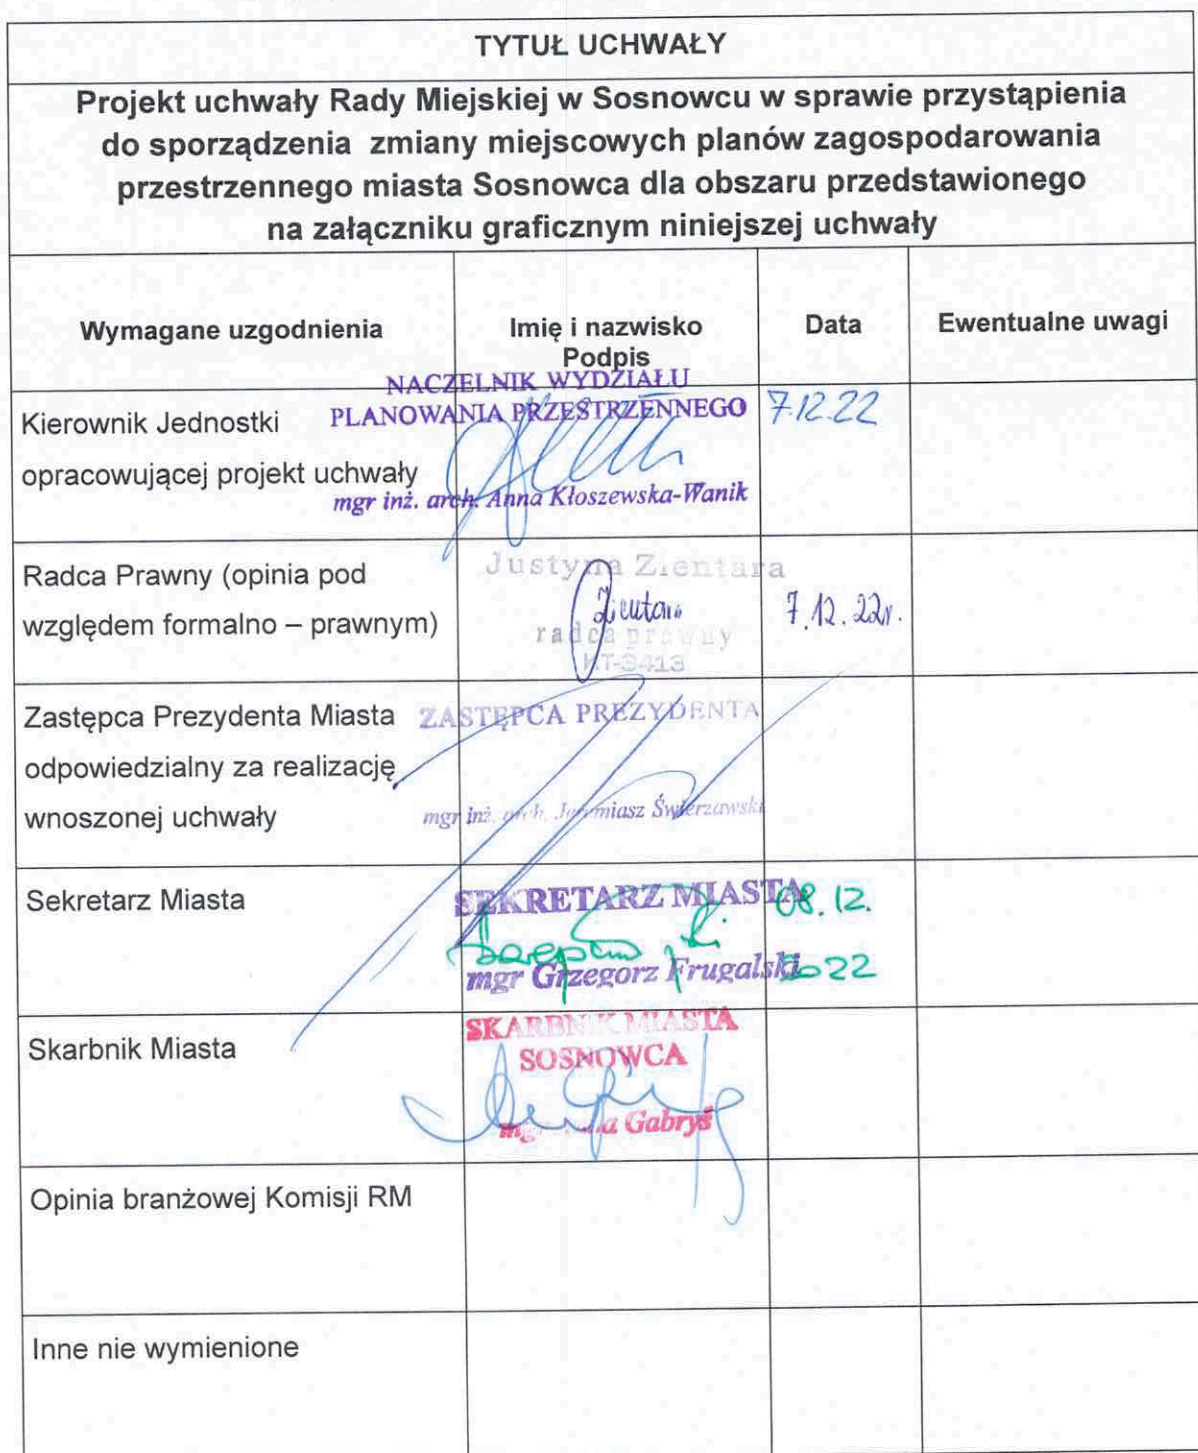 TYTUŁ UCHWAŁY
Projekt uchwały Rady Miejskiej w Sosnowcu w sprawie przystąpienia
do sporządzenia zmiany miejscowych planów zagospodarowania
przestrzennego miasta Sosnowca dla obszaru przedstawionego
na załączniku graficznym niniejszej uchwały
Wymagane uzgodnienia
Imię i nazwisko
Podpis
Data
Ewentualne uwagi
Kierownik Jednostki
opracowującej projekt uchwały
NACZELNIK WYDZIAŁU
PLANOWANIA PRZESTRZENNEGO
mgr inż. arch. Anna Kłoszewska-Wanik
7.12.22
Radca Prawny (opinia pod
względem formalno – prawnym)
Justyna Zientara
radca prawny
KT-3413
7.12.22r.
Zastępca Prezydenta Miasta
odpowiedzialny za realizację
wnoszonej uchwały
ZASTĘPCA PREZYDENTA
mgr inż. arch. Jeremiasz Świerzawski
Sekretarz Miasta
SEKRETARZ MIASTA
mgr Grzegorz Frugalski
08.12.
2022
Skarbnik Miasta
SKARBNIK MIASTA
SOSNOWCA
Gabryś
Opinia branżowej Komisji RM
Inne nie wymienione